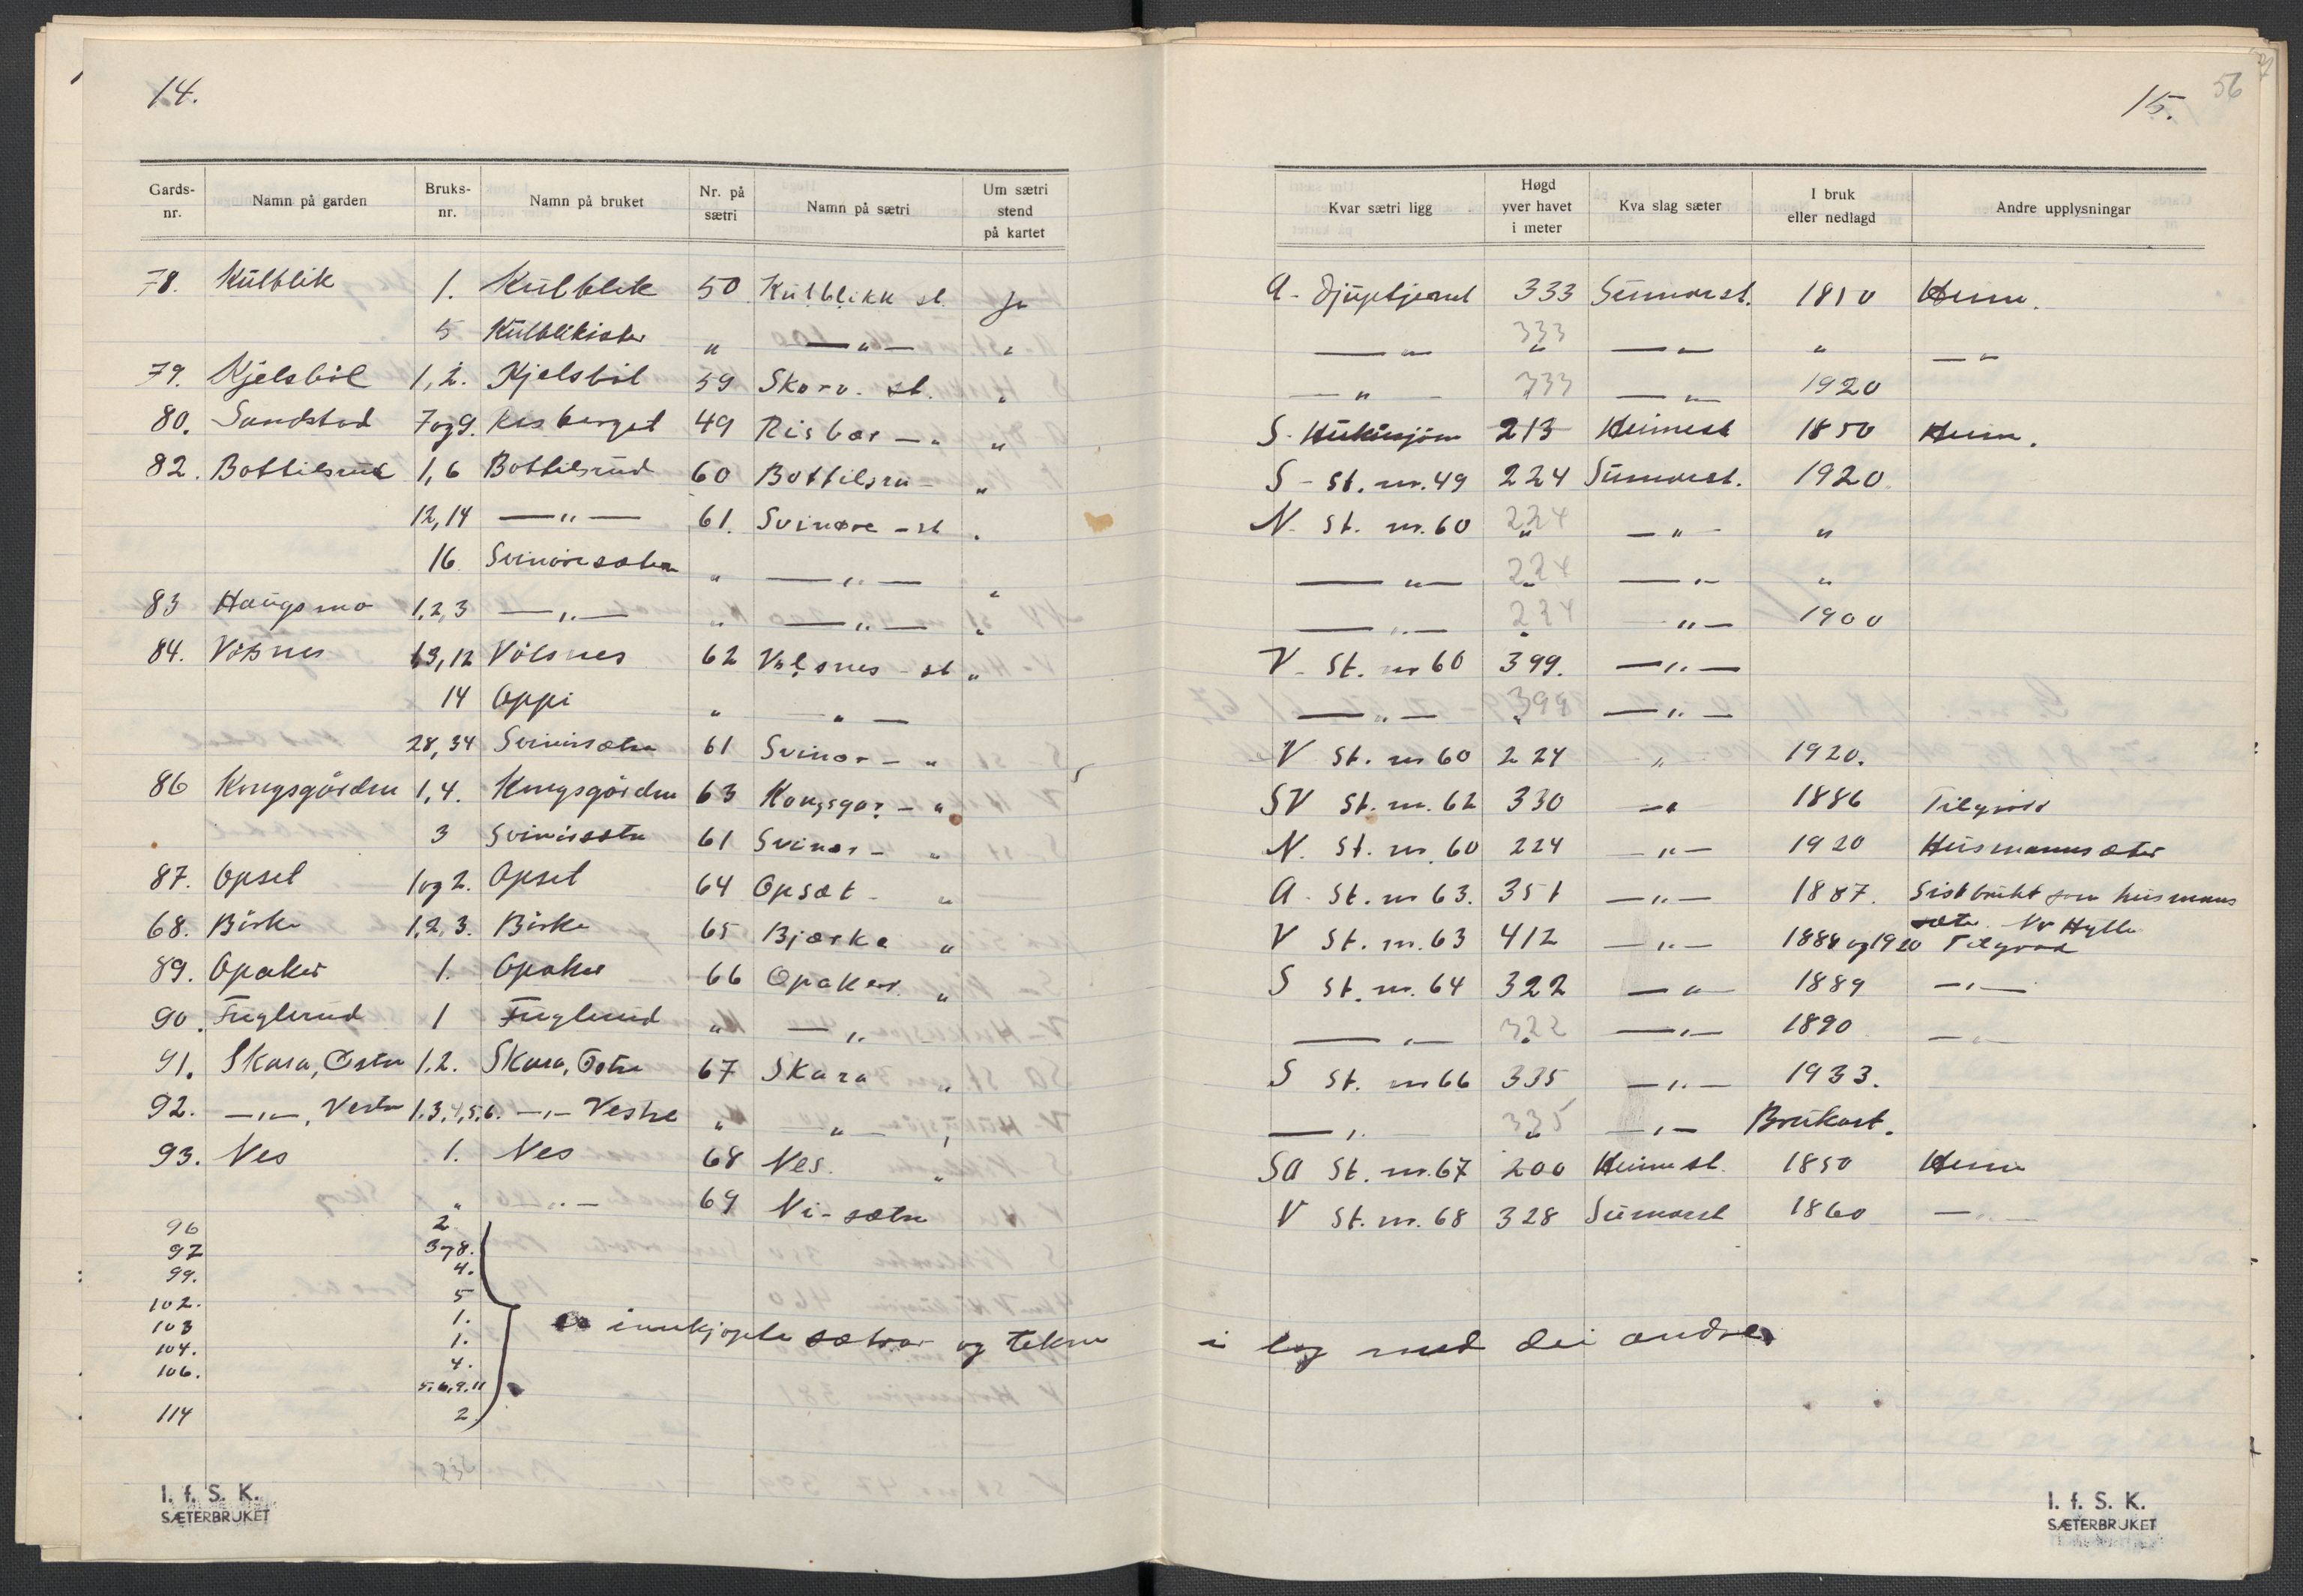 14.
Gards-nr. Namn på garden Bruks-nr. Namn på bruket Nr. på sætri Namn på sætri Um sætri stend på kartet
78. Kulblik 1. Kulblik 50 Kulblikk st. ja
5 Kulblikister „ —„— „
79. Kjelsbøl 1, 2. Kjelsbøl 59 Skara. st. „
80. Sandstad 7og9. Risberget 49 Risbær —„ „
82. Bottilsrud 1,6 Bottilsrud 60 Bottilsru — „
12,14 —„— 61. Svinøre - st „
16 Svinøresætra „ —„— „
83 Haugsmo 1,2,3 —„— „ —„— „
84. Volsnes 13,12 Volsnes 62 Volsnes - st „
14 Oppi „ —„—
28,34 Svinørsætra 61 Svinør - „
86 Kongsgården 1,4. Kongsgården 63 Kongsgar - „
3 Svinørsætra 61 Svinør - „
87. Opset 1og2. Opset 64 Opsæt - „
68. Birke 1,2,3. Birke 65 Bjærke „
89. Opaker 1. Opaker 66 Opaker „
90. Fuglerud 1 Fuglerud „ —„
91. Skara, Østre 1,2. Skara, Østre 67 Skara „
92. —„—, Vestre 1.3,4,5,6. —„— Vestre „ —„—
93. Nes 1. Nes 68 Nes. „
„ —„— 69 Ni-sætra
96 2
97 3 og 8.
99. 4.
102. 5
103 1.
104. 1.
106. 4.
5.6.9.11
114 2
innkjøpte sætrar og tekne i lag med dei andre
236
I. f. S. K.
SÆTERBRUKET
56
15.
Kvar sætri ligg Høgd yver havet i meter Kva slag sæter I bruk eller nedlagd Andre upplysningar
A - Djuptjernet 333 Sumarst. 1810 Heim.
—„ 333 „ —„ „ —„
—„— 333 —„ 1920
S. Hukusjøen 213 Heimest 1850 Heim.
S - St. nr. 49 224 Sumarst. 1920
N. St. nr. 60 224 „ —„— „
—„— 224 „ —„— „
—„— 224 „ „— 1900
V. St. nr 60 399. —„—
—„— 398 „ —„—
V St. nr 60 224 „ 1920.
SV St. nr. 62 330 —„ 1886 Tilgrodd
N. St. nr. 60 224 —„— 1920 Husmannsæter
A. St. nr 63. 351 —„— 1887. Sist brukt som husmans
sæter. Nr Hytte
V St. nr. 63 412 —„— 1888 og 1920 Tilgrodd
S St. nr. 64 322 —„— 1889 —„—
—„— 322 „ —„— 1890 —„—
S St. nr 66 335 —„— 1933.
—„ 335 „ —„— Brukast.
SA St. nr. 67 200 Heimest. 1850 Heim
V St. nr. 68 328 Sumarst 1860 —„—
I. f. S. K.
SÆTERBRUKET